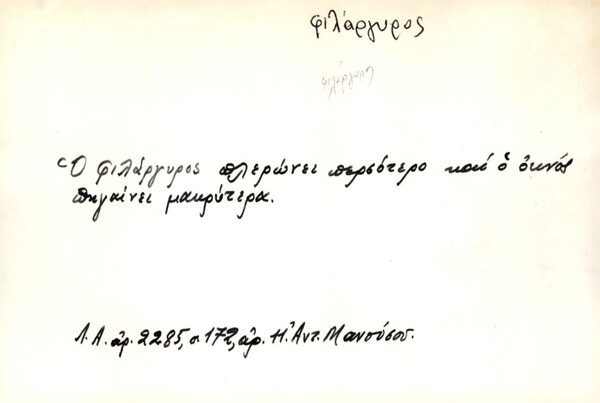 φιλάργυρος
φιλάργυρη
Ὁ φιλάργυρος πλερώνει περσότερο καί ὁ ὀκνός
πηγαίνει μακρύτερα.
Λ.Α. ἀρ. 2285, σ. 172, ἀρ. Η' Ἀντ. Μανούσου.